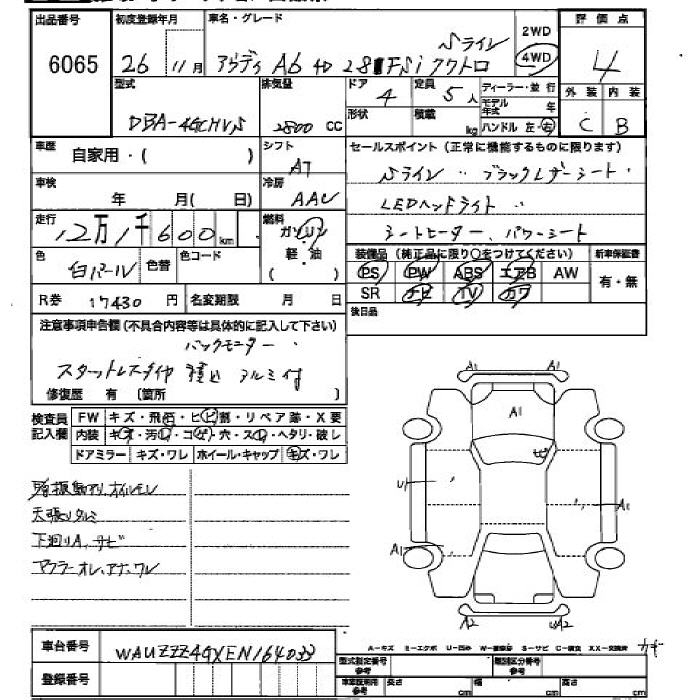 出品番号 初度登録年月 車名・グレード 評価点
6065 26 11月 アウディ A6 4D 28 FSi クワトロ Sライン 2WD 4WD 4
型式 排気量 ドア 定員 ディーラー・並 行 外装 内装
DBA-4GCHVS 2800 CC 4 5人 モデル年式 年 C B
形状 積載 kg ハンドル 左・右
車歴 自家用・( ) シフト AT
セールスポイント (正常に機能するものに限ります)
車検 年 月( 日) 冷房 AAC
Sライン 〃 ブラックレザーシート・
LEDヘッドライト 〃
シートヒーター、パワーシート
走行 12万1千600km 燃料 ガソリン 軽・油 ( )
色 白パール 色替 色コード
装備品 (純正品に限り○をつけてください) 新車保証書
PS PW ABS エアB AW 有・無
SR ナビ TV カワ
R券 17430 円 名変期限 月 日
後日品
注意事項申告欄 (不具合内容等は具体的に記入して下さい)
バックモニター・
スタットレスタイヤ 積込 アルミ付
修復歴 有 [箇所 ]
検査員記入欄 FW キズ・飛石・ヒビ割・リペア跡・X要
内装 キズ・汚レ・コゲ・穴・スレ・ヘタリ・破レ
ドアミラー キズ・ワレ ホイール・キャップ キズ・ワレ
A1 A1
A1
ヒ
U1 A1
A1
A2 UA2
天張りタルミ
下廻りA、サビ
マフラーオレ、アナ、ワレ
車台番号 WAUZZZ4GXEN164033
登録番号
A-キズ E-エクボ U-凹み S-サビ C-腐食 XX-交換済 カギ
型式指定番号 参考 類別区分番号 参考
車検証用 参考 長さ cm 幅 cm 高さ cm